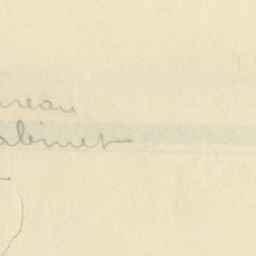 ureau
abinet